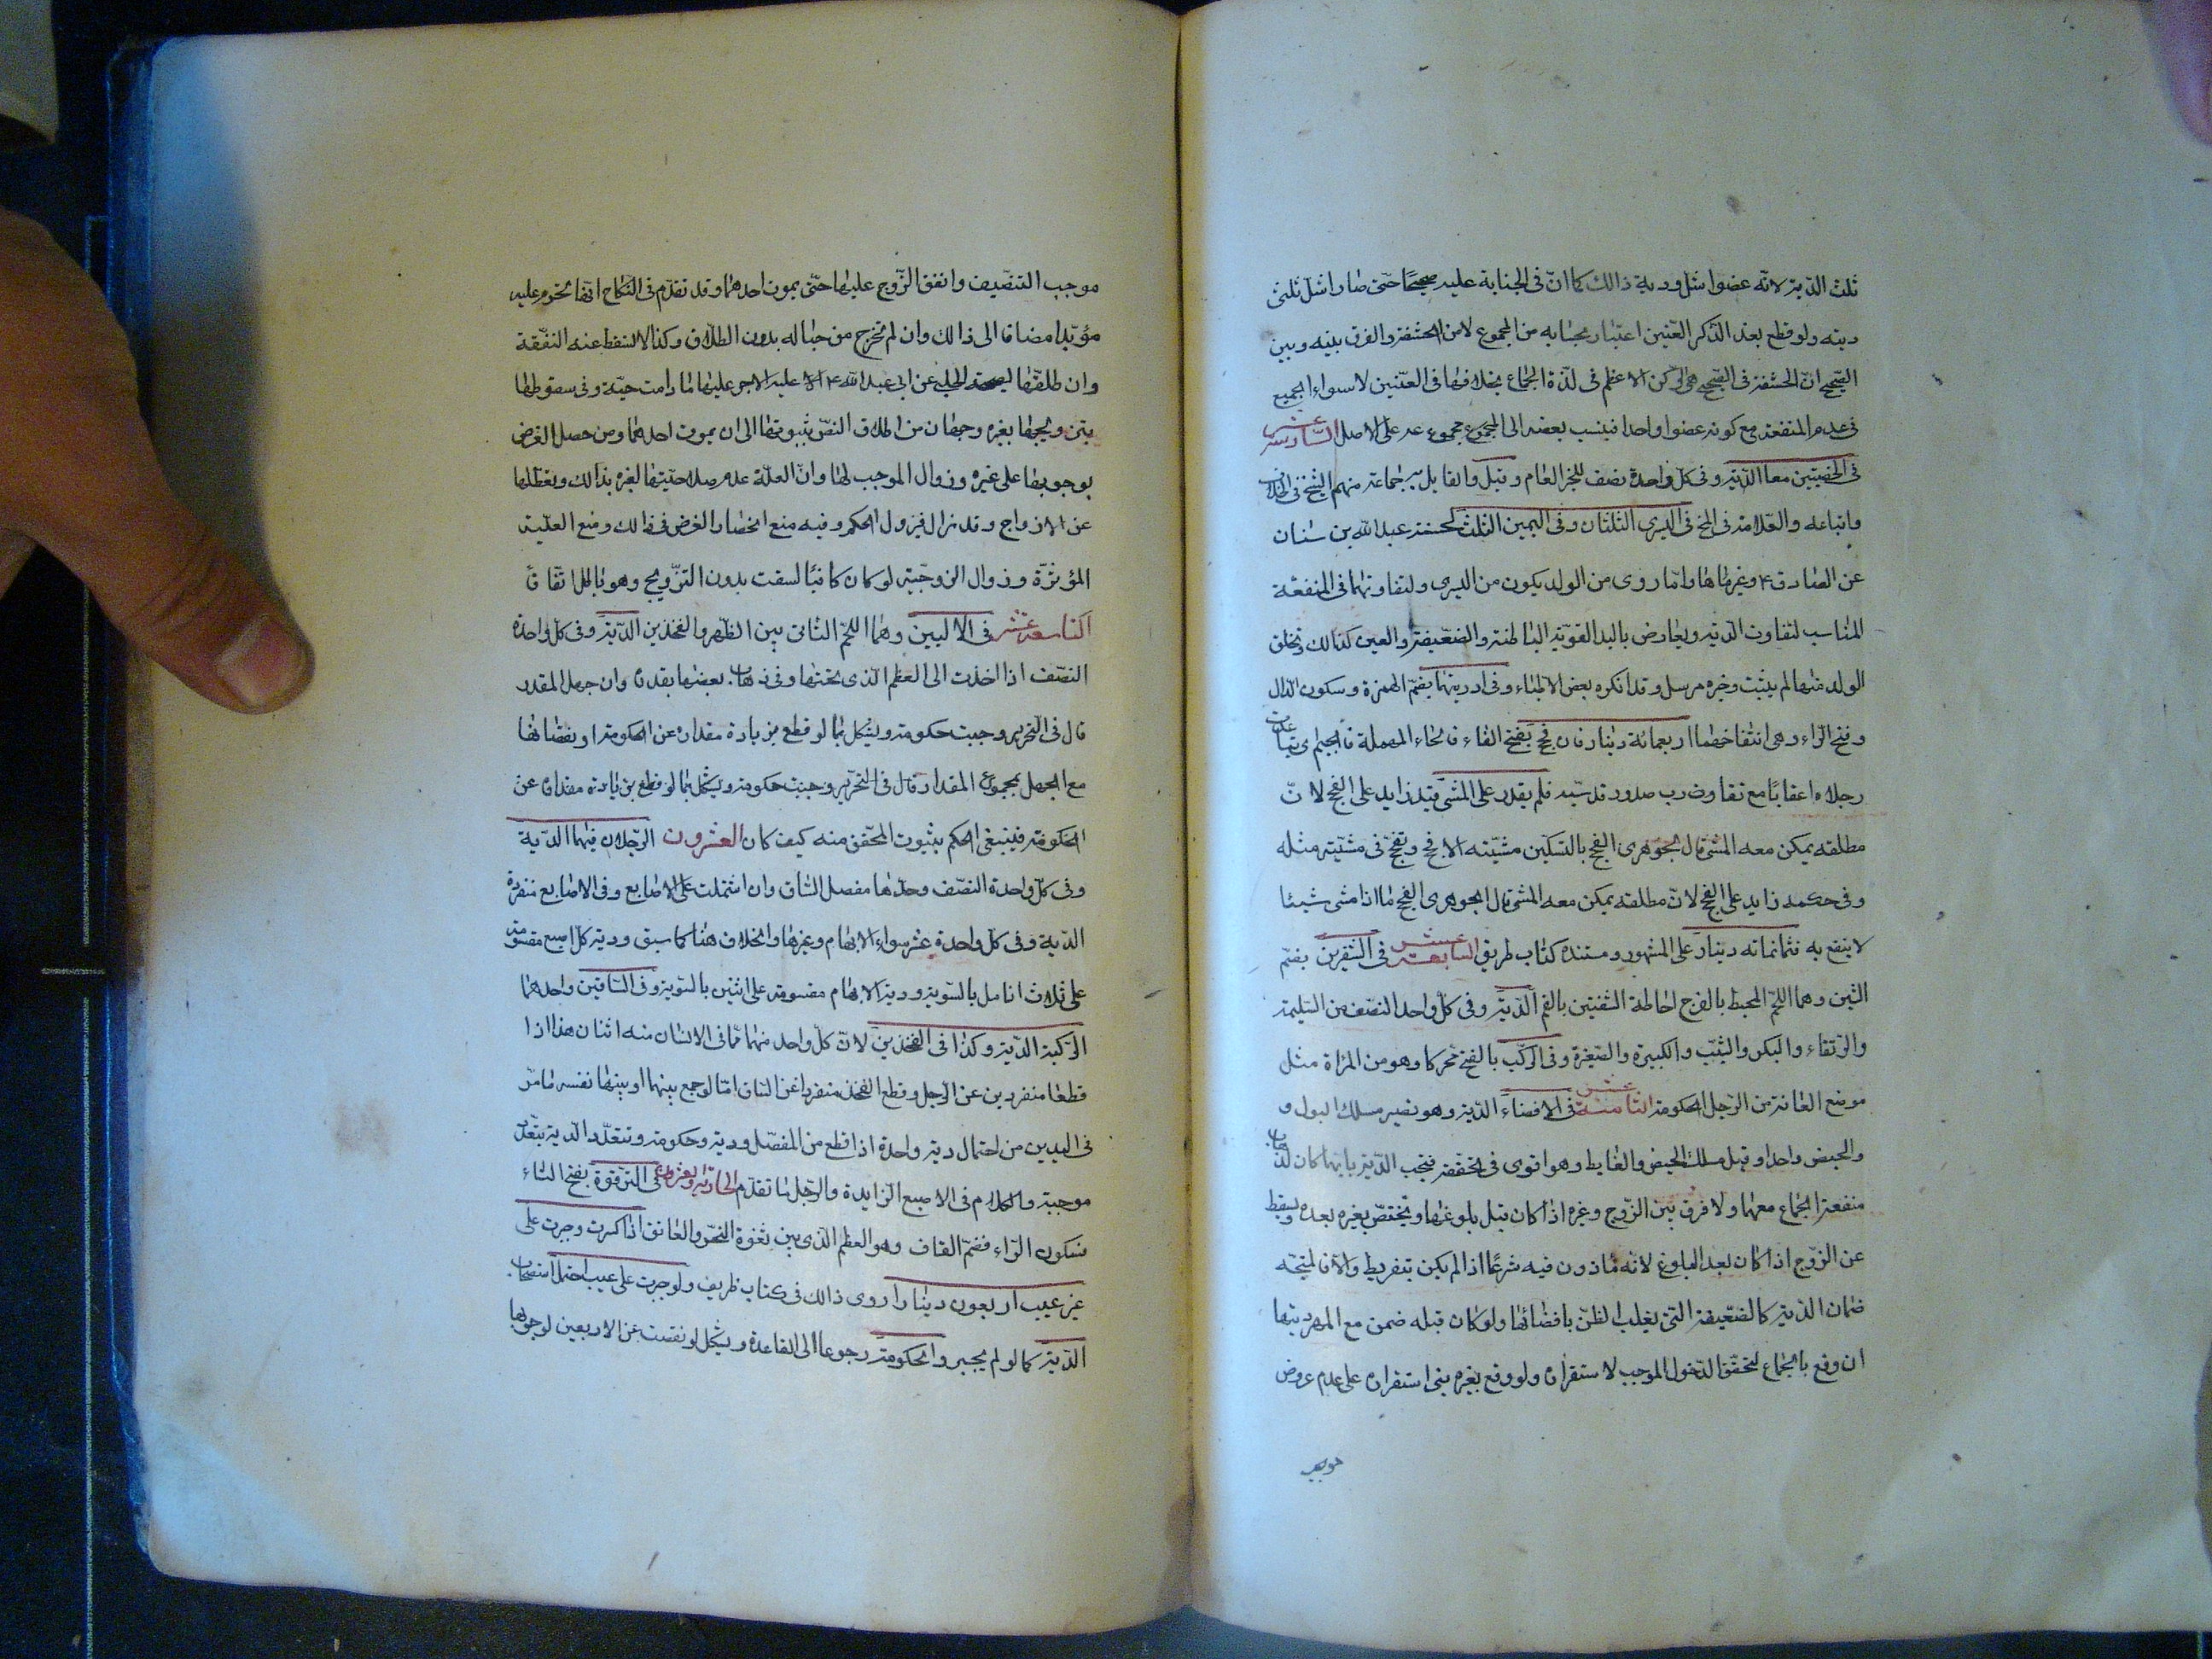 ثلث الدّية لانّه عضو اشلّ ودية ذالك كما انّ فى الجناية عليه صحيحًا حتّى صار اشلّ ثلثى
ديته ولو قطع بعض الذّكر العنّين اعتبار بحسابه من المجموع لا من الحشفة والفرق بينه وبين
الصّحيح انّ الحشفة فى الصّحيح هى الرّكن الاعظم فى لذّة الجماع بخلافها فى العنّين لاستواء الجميع
فى عدم المنفعة مع كونه عضوا واحدا فينسب بعضه الى المجموع على الاصل السّادسة عشر
فى الخصيتين معا الدّية وفى كلّ واحدة نصف للخبر العام وقيل والقايل به جماعة منهم الشّيخ فى الخلاف
واتباعه والعلامة فى المخ فى اليسرى الثلثان وفى اليمين الثلث لحسنة عبد الله بن سنان
عن الصّادق ع وغيرها ولما روى من الولد يكون من اليسرى ولتفاوتهما فى المنفعة
المناسب لتفاوت الدّية ويعارض باليد القويّة الباطشة والضّعيفة والعين كذالك وتخلّق
الولد منها لم يثبت وخبره مرسل وقد انكره بعض الاطباء وفى ادرتهما بضمّ الهمزة وسكون الدّال
وفتح الرّاء وهى انتفاخهما اربعمائة دينار فان فحج بفتح الفاء فالحاء المهملة فالجيم اى تباعدت
رجلاه اعقابًا مع تقارب صدور قدميه فلم يقدر على المشى قيد زايد على الفحج لانّ
مطلقه يمكن معه المشى قال الجوهرى الفحج بالتسكين مشيته الافحج وتفحّج فى مشيّته مثله
وفى حكمه زايد على الفحج لانّ مطلقه يمكن معه المشى قال الجوهرى الفحج ما اذا مشى شيئا
لا ينتفع به فثمانمائه دينار على المشهور ومستنده كتاب طريف السّابعة عشر فى الشّفرين بضمّ
الشّين وهما اللّحم المحيط بالفرج احاطة الشّفتين بالفم الدّية وفى كلّ واحد النّصف من السّليمة
والرّتقاء والبكر والثيّب والكبيرة والصّغيرة وفى الركب بالفتح محركا وهو من المراة مثل
موضع العانة من الرّجل الحكومة الثّامنة عشر فى الافضاء الدّية وهو تصير مسلك البول و
والحيض واحدا وقيل مسلك الحيض والغايط وهو اقوى فى تحققه فتجب الدّية بايّهما كان لذهاب
منفعة الجماع معهما ولا فرق بين الزّوج وغيره اذا كان قبل بلوغها ويختصّ بغيره بعده ويسقط
عن الزّوج اذا كان بعد البلوغ لانّه مأذون فيه شرعًا اذا لم يكن بتفريط والّا فالمتّجه
ضمان الدّية كالضّعيفة التى يغلب الظنّ بافضائها ولو كان قبله ضمن مع المهر ديتها
ان وقع بالجماع لتحقّق الدّخول الموجب لاستقراره ولو وقع بغيره بنى استقراره على عدم عروض
موجب
موجب التنصّيف وانفق الزّوج عليها حتّى يموت احدهما وقد تقدّم فى النّكاح انّها تحرم عليه
مؤبّدا مضافا الى ذالك وان لم تخرج من حباله بدون الطّلاق وكذا لا تسقط عنه النّفقة
وان طلّقها لصحيحة الحلبى عن ابى عبد الله ع عليه الاجر عليها ما دامت حيّة وفى سقوطها
بتزويجها بغيره وجهان من اطلاق النصّ بثبوتها الى ان يموت احدهما ومن حصل الغرض
بوجوبها على غيره وزوال الموجب لها وانّ العلّة عدم صلاحيّتها لغيره بذالك وتعطّلها
عن الازواج وقد زال فيزول الحكم وفيه منع انحصار الغرض فى ذالك ومنع العلّية
المؤثّرة وزوال الزوجيّة لو كان كافيًا لسقت بدون التزّويج وهو باطل اتّفاقًا
التاسعة عشر فى الاليين وهما اللّحم الناتى بين الظّهر والفخذين الدّية وفى كلّ واحدة
النصّف اذا اخذت الى العظم الّذى تحتها وفى ذهاب بعضها بقدره وان جهل المقدر
قال فى التّحرير وجبت حكومة ويشكل بما لو قطع بزيادة مقداره عن الحكومة او نقصانها
مع الجهل بمجموع المقدار قال فى التحرير وجبت حكومة ويشكل بما لو قطع بزيادة مقداره عن
الحكومة فينبغى الحكم بثبوت المحّقق منه كيف كان العشرون الرّجلان فيهما الدّية
وفى كلّ واحدة النصّف وحدّها مفصل السّاق وان اشتملت على الاصابع وفى الاصابع منفردة
الدّية وفى كلّ واحدة عشر سواء الابهام وغيرها والخلاف هنا كما سبق ودية كلّ اصبع مقسومة
على ثلاث انامل بالسّوية ودية الابهام مقسومة على اثنين بالسّوية وفى السّاقين واحدهما
الرّكبة الدّية وكذا فى الفخذين لانّ كلّ واحد منهما ممّا فى الانسان منه اثنان هذا اذا
قطعا منفردين عن الرّجل وقطع الفخذ منفردا عن السّاق امّا لو جمع بينهما او بينها نفسه ما مرّ
فى اليدين من احتمال دية واحدة اذا قطع من المفصل ودية وحكومة وتتعدّد الّدية بتعدّد
موجبة والكلام فى الاصبع الزّايدة والرّجل ما تقدّم الحادية والعشرون فى الترّقوة بفتح التاء
فسكون الرّاء فضمّ القاف وهو العظم الّذى بين ثغرة النّحر والعاتق اذا كسرت وجبرت على
غير عيب اربعون دينارا روى ذالك فى كتاب ظريف ولو جبرت على عيب احتمل استصحاب
الدّية كما لو لم يجبر والحكومة رجوعا الى القاعدة ويشكل لو نقصت عن الاربعين لوجوبها